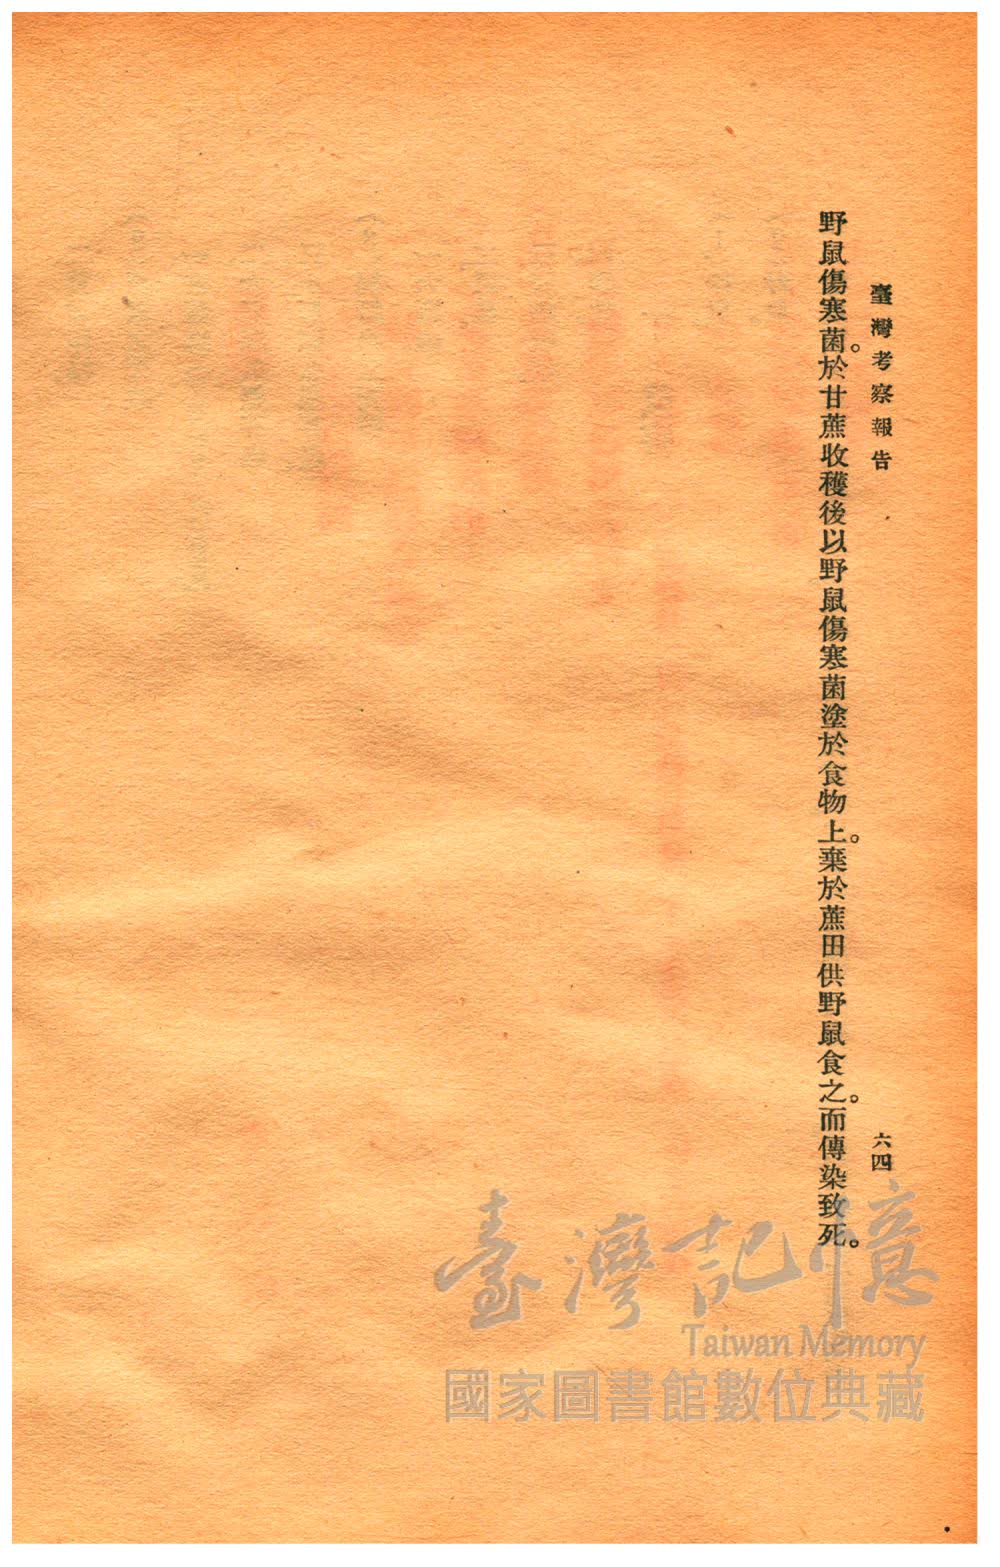 臺灣考察報告
六四
野鼠傷寒菌。於甘蔗收穫後以野鼠傷寒菌塗於食物上。棄於蔗田供野鼠食之。而傳染致死。
臺灣記憶
Taiwan Memory
國家圖書館數位典藏